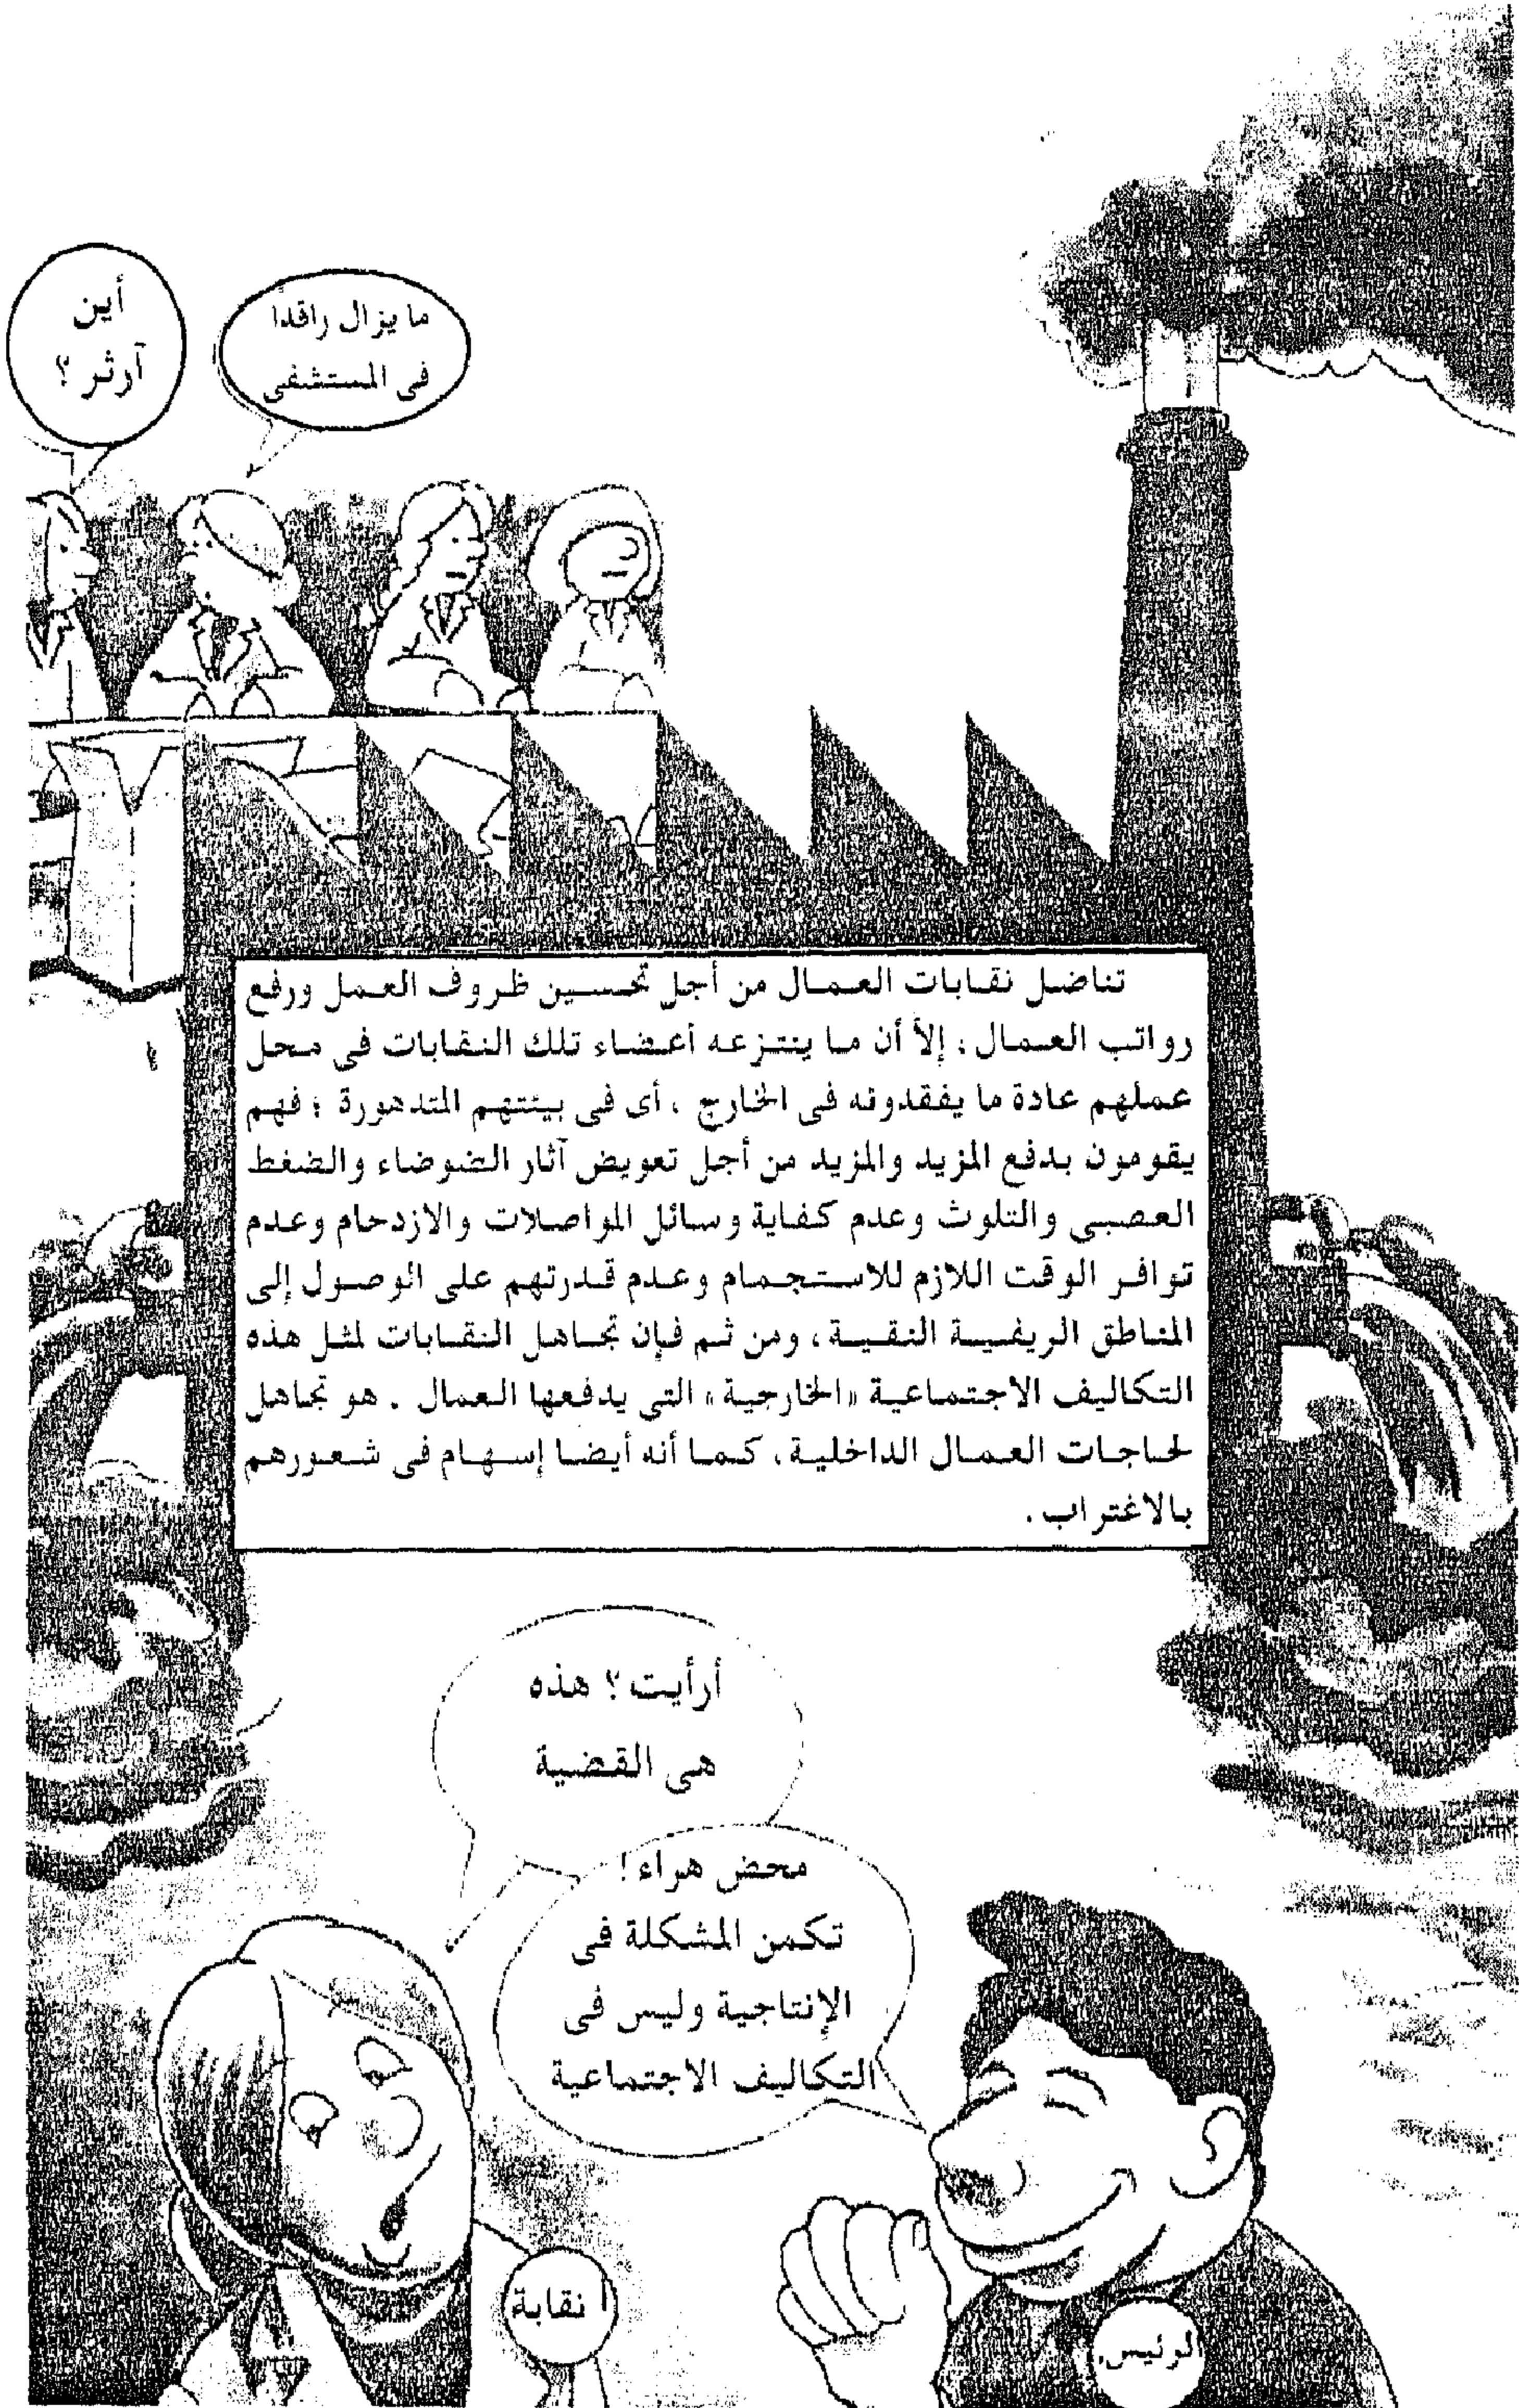 أين
آرثر ؟
ما يزال راقدا
فى المستشفى
تناضل نقابات العمال من أجل تحسين ظروف العمل ورفع
رواتب العمال ؛ إلا أن ما ينتزعه أعضاء تلك النقابات فى محل
عملهم عادة ما يفقدونه فى الخارج ، أى فى بيئتهم المتدهورة ؛ فهم
يقومون بدفع المزيد والمزيد من أجل تعويض آثار الضوضاء والضغط
العصبى والتلوث وعدم كفاية وسائل المواصلات والازدحام وعدم
توافر الوقت اللازم للاستجمام وعدم قدرتهم على الوصول إلى
المناطق الريفية النقية ، ومن ثم فإن تجاهل النقابات لمثل هذه
التكاليف الاجتماعية «الخارجية» التى يدفعها العمال . هو تجاهل
لحاجات العمال الداخلية ، كما أنه أيضا إسهام فى شعورهم
بالاغتراب .
أرأيت ؟ هذه
هى القضية
محض هراء !
تكمن المشكلة فى
الإنتاجية وليس فى
التكاليف الاجتماعية
نقابة
الرئيس